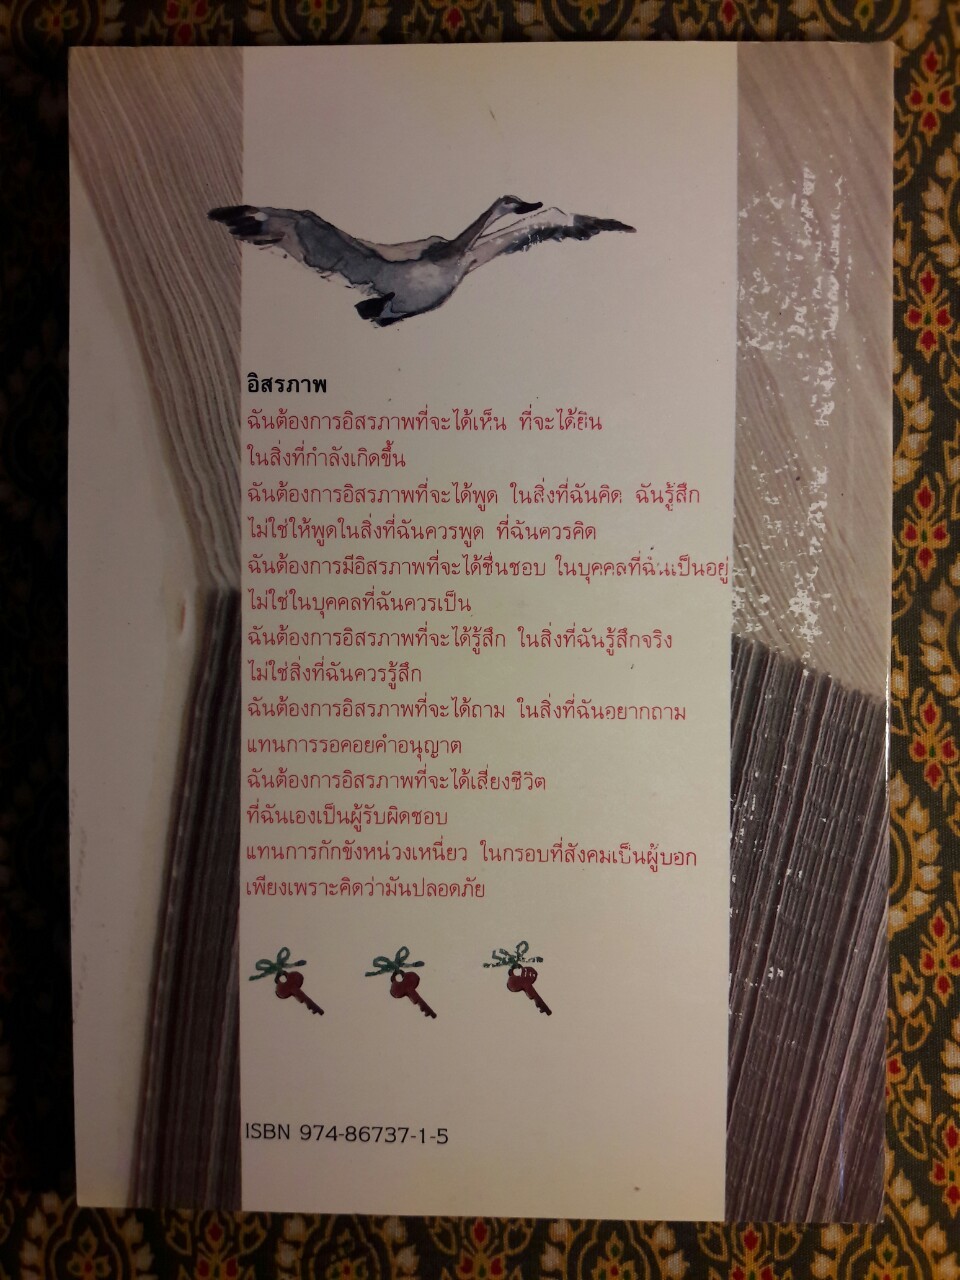 อิสรภาพ
ฉันต้องการอิสรภาพที่จะได้เห็น ที่จะได้ยิน
ในสิ่งที่กำลังเกิดขึ้น
ฉันต้องการอิสรภาพที่จะได้พูด ในสิ่งที่ฉันคิด ฉันรู้สึก
ไม่ใช่ให้พูดในสิ่งที่ฉันควรพูด ที่ฉันควรคิด
ฉันต้องการมีอิสรภาพที่จะได้ชื่นชอบ ในบุคคลที่ฉันเป็นอยู่
ไม่ใช่ในบุคคลที่ฉันควรเป็น
ฉันต้องการอิสรภาพที่จะได้รู้สึก ในสิ่งที่ฉันรู้สึกจริง
ไม่ใช่สิ่งที่ฉันควรรู้สึก
ฉันต้องการอิสรภาพที่จะได้ถาม ในสิ่งที่ฉันอยากถาม
แทนการรอคอยคำอนุญาต
ฉันต้องการอิสรภาพที่จะได้เสี่ยงชีวิต
ที่ฉันเองเป็นผู้รับผิดชอบ
แทนการกักขังหน่วงเหนี่ยว ในกรอบที่สังคมเป็นผู้บอก
เพียงเพราะคิดว่ามันปลอดภัย
ISBN 974-86737-1-5